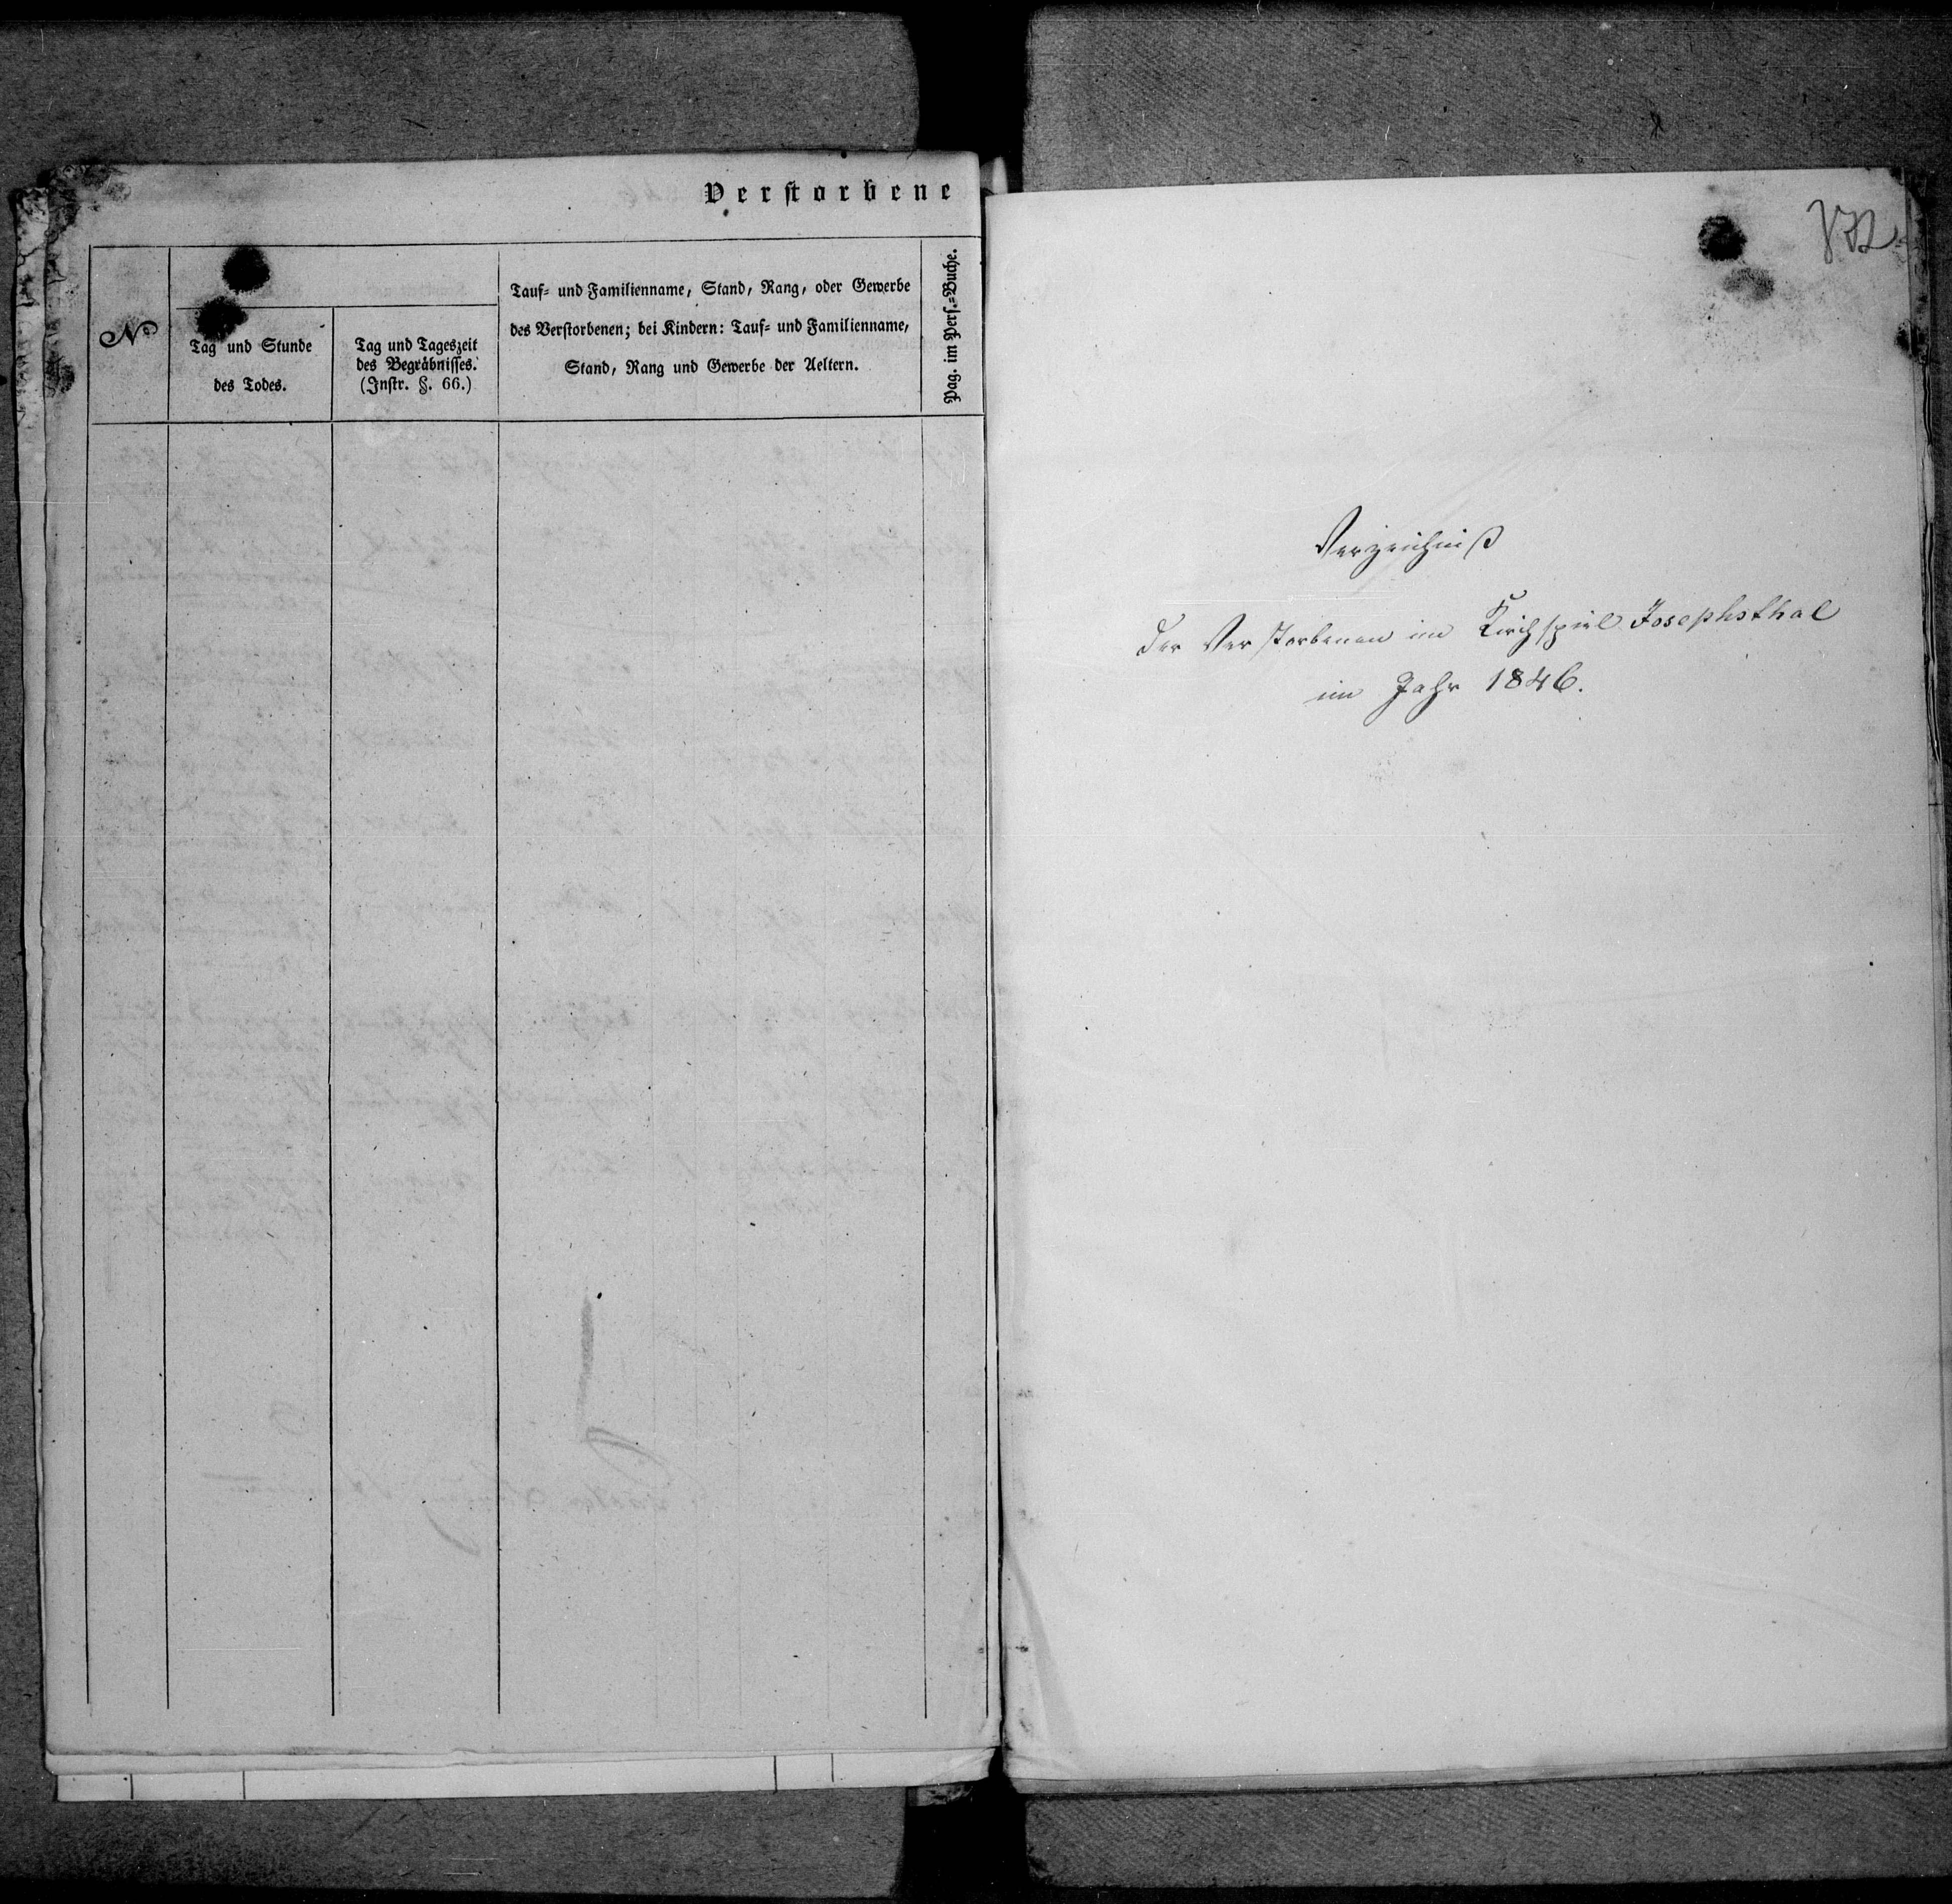 Verstorbene
No
Tag und Stunde
des Todes.
Tag und Tageszeit
des Begräbnisses.
(Instr. §. 66.)
Tauf- und Familienname, Stand, Rang, oder Gewerbe
des Verstorbenen; bei Kindern: Tauf- und Familienname,
Stand, Rang und Gewerbe der Aeltern.
Pag. im Pers.-Buche.
Verzeichniß
der Verstorbenen im Kirchspiel Josephsthal
im Jahr 1846.